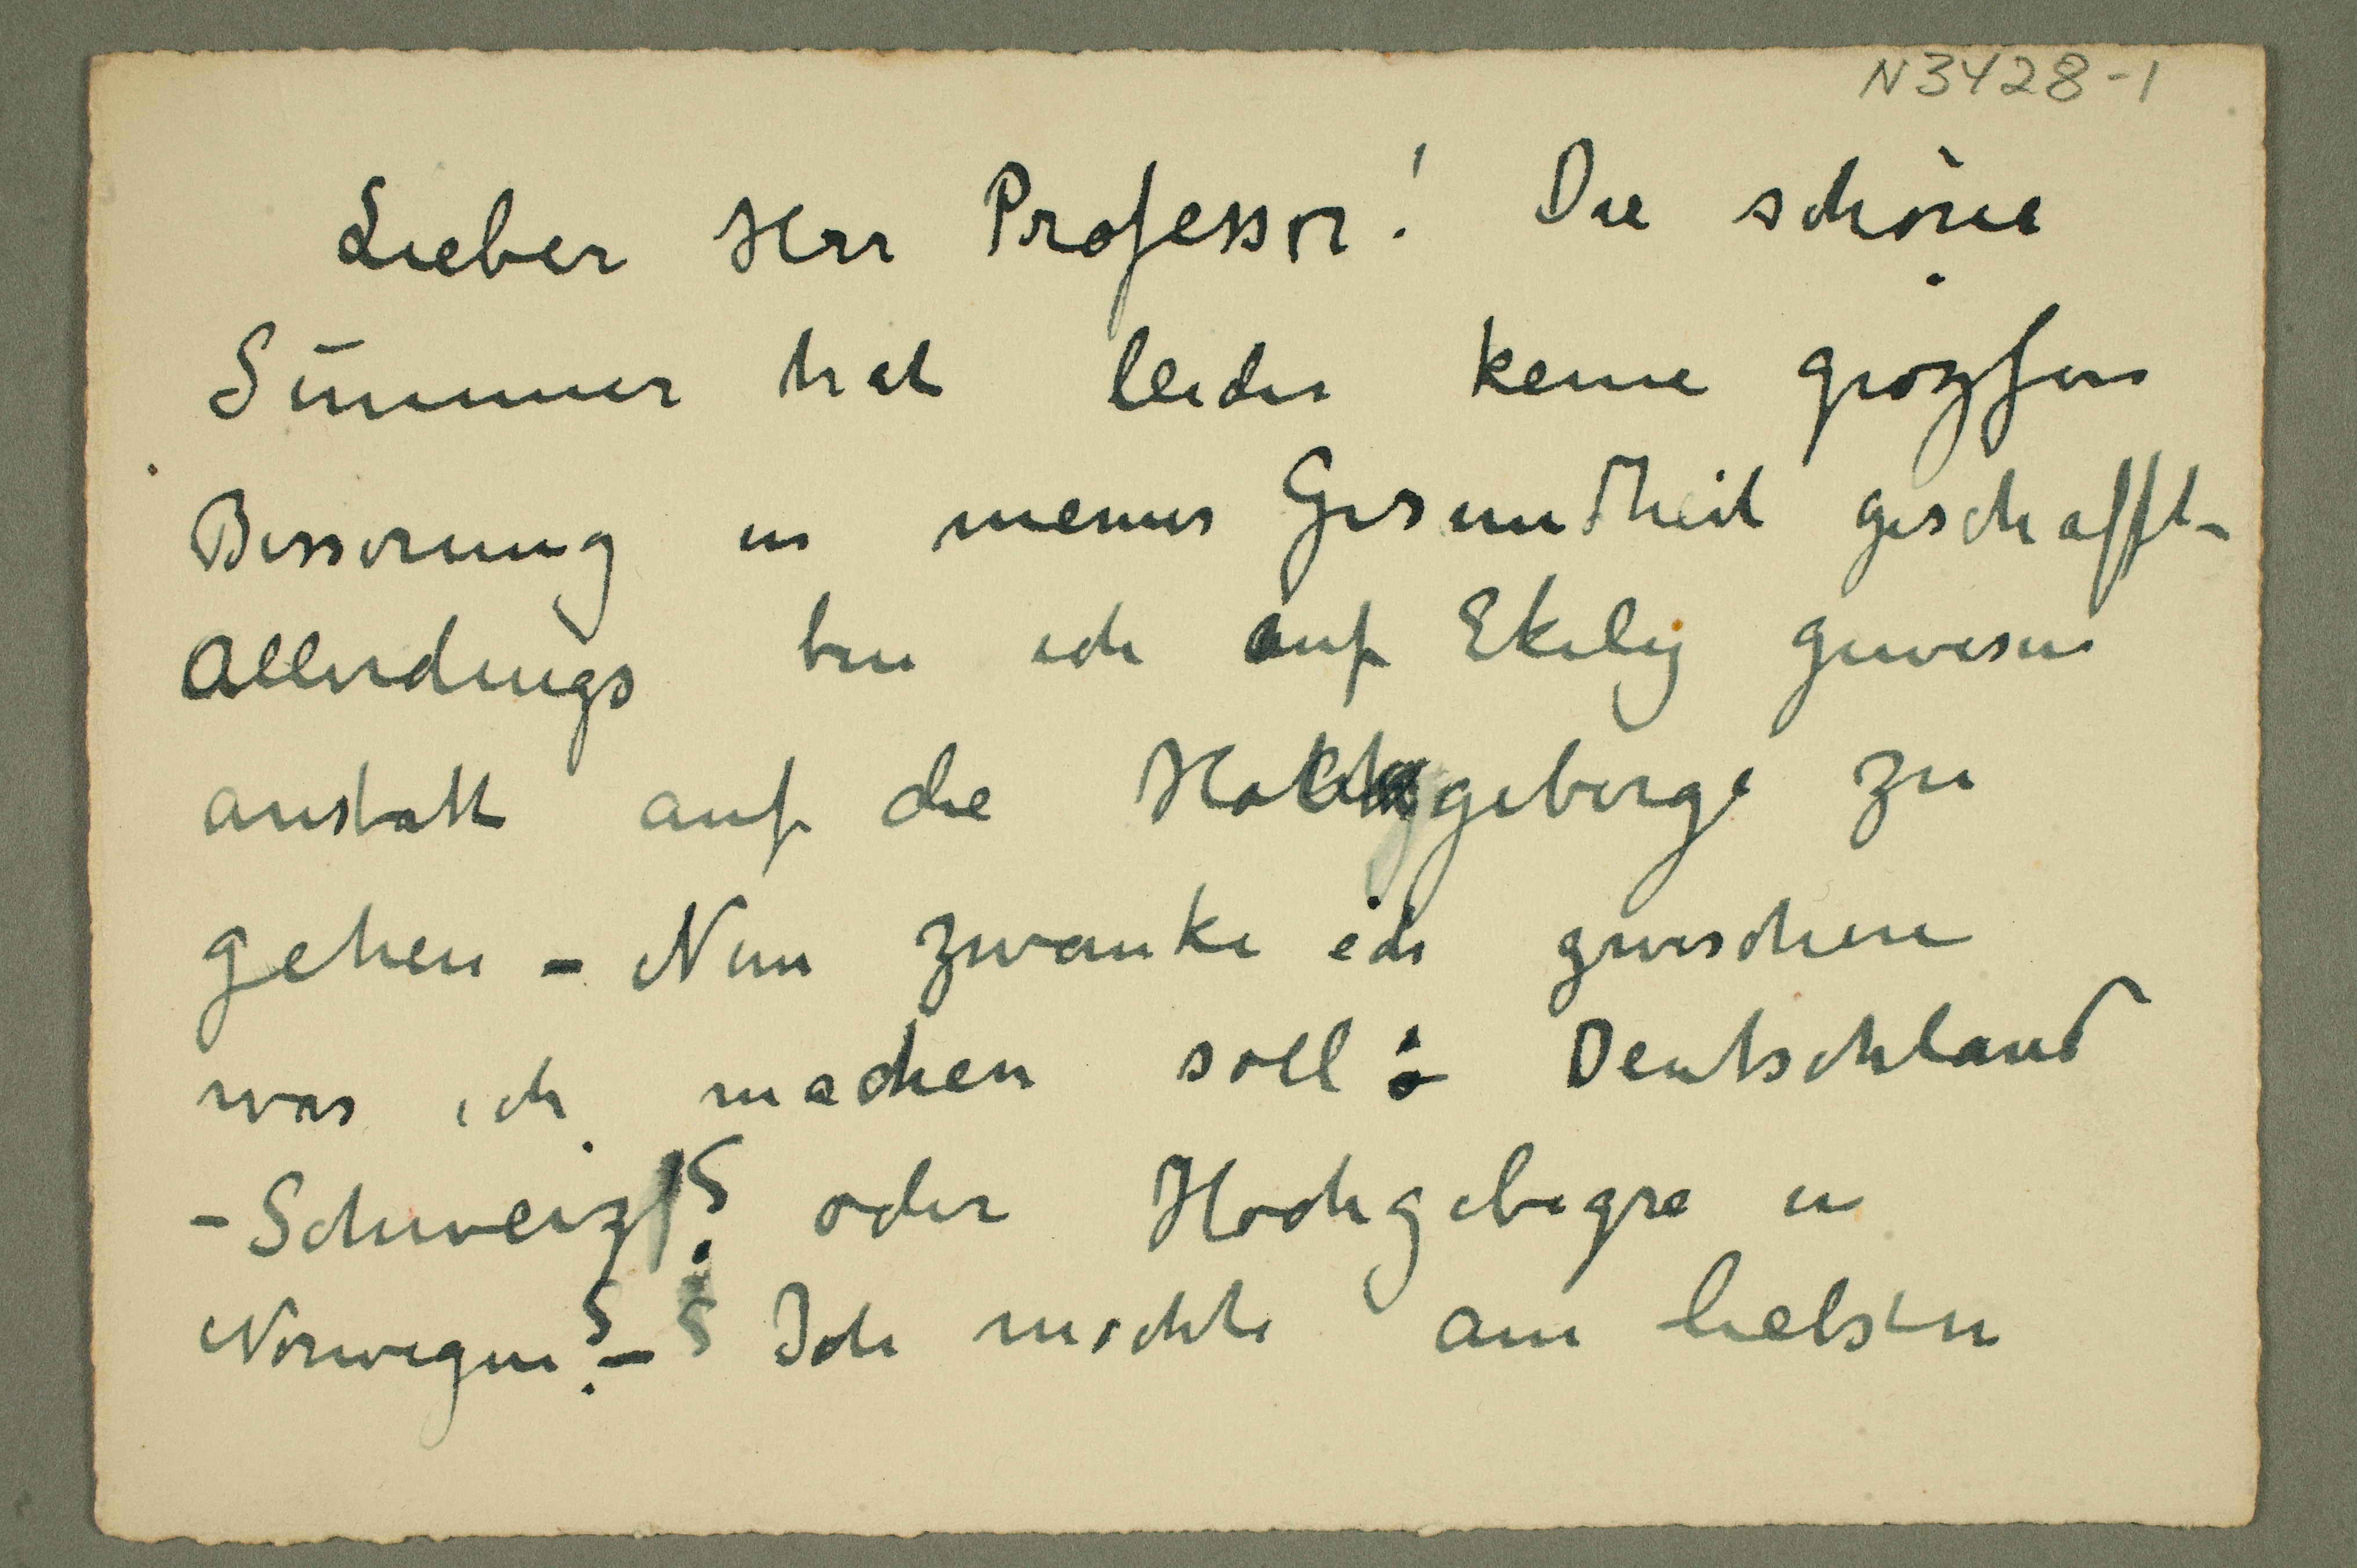 N 3428-1
Lieber Herr Professor! Die schöne
Summer hat leider keine grozsen
Besserung in meiner Gesundheit geschafft –
Allerdings bin ich auf Ekely gewesen
anstatt auf die Hochgeberge zu
gehen – Nun zwanke ich zwischen
was ich machen soll: Deutschland
– Schweiz? oder Hochgebigre in
Norwegen? – Ich möchte am liebsten